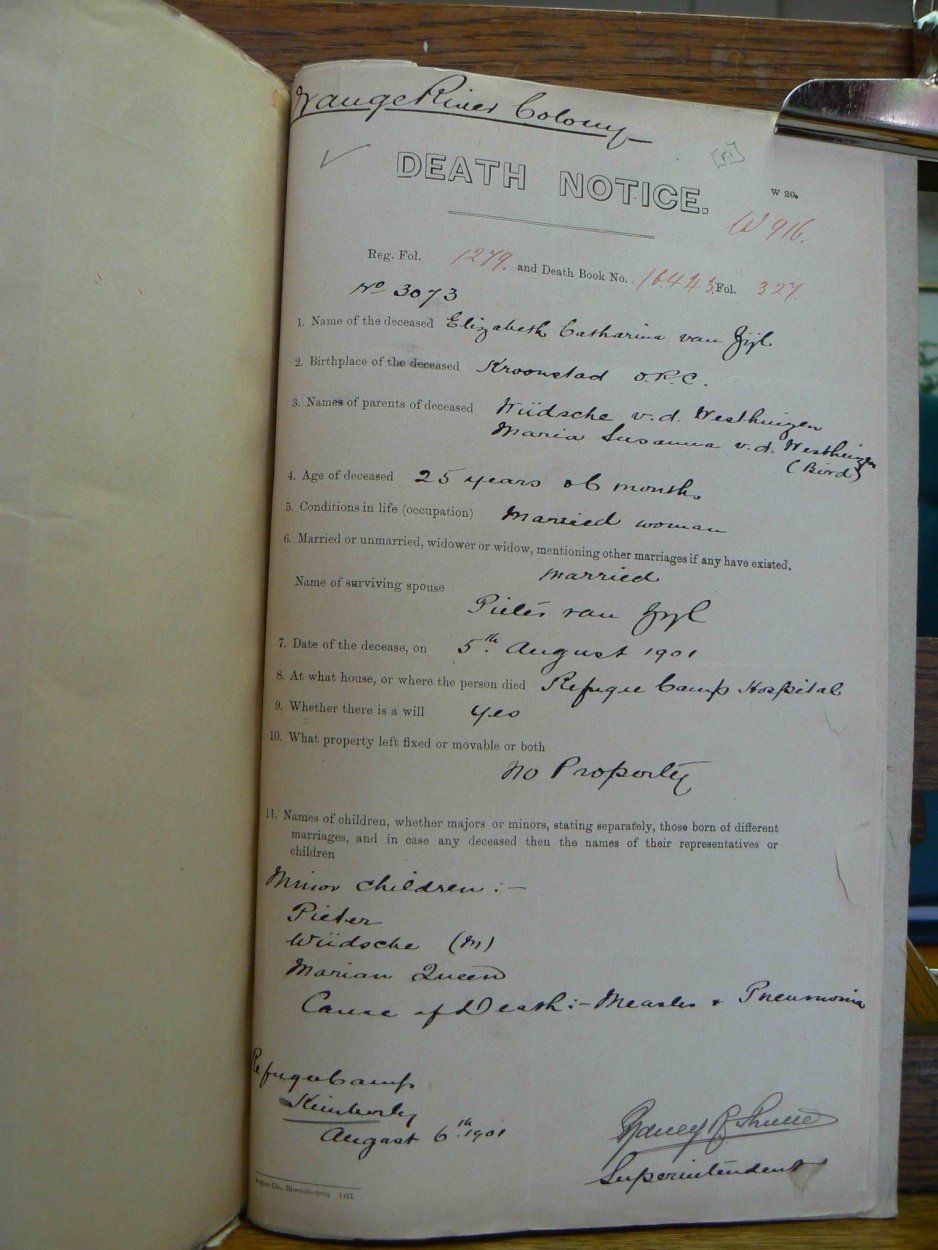 Orange River Colony
DEATH NOTICE.
W 20.
W 916.
Reg. Fol. 1279. and Death Book No. 16443. Fol. 327.
No 3073
1. Name of the deceased Elizabeth Catharina van Zijl
2. Birthplace of the deceased Kroonstad O.R.C.
3. Names of parents of deceased Wüdsche v.d. Westhuizen
Maria Susanna v.d. Westhuizen
(Bird)
4. Age of deceased 25 years 06 months
5. Conditions in life (occupation) Married woman
6. Married or unmarried, widower or widow, mentioning other marriages if any have existed.
married
Name of surviving spouse
Pieter van Zyl
7. Date of the decease, on 5th August 1901
8. At what house, or where the person died Refugee Camp Hospital
9. Whether there is a will yes
10. What property left fixed or movable or both
No Property
11. Names of children, whether majors or minors, stating separately, those born of different
marriages, and in case any deceased then the names of their representatives or
children
Minor children :-
Pieter
Wüdsche (M)
Marian Queen
Cause of Death :- Measles + Pneumonia
Refugee Camp
Kimberly
August 6th 1901
Sydney
Superintendent
Argus Co., Bloemfontein